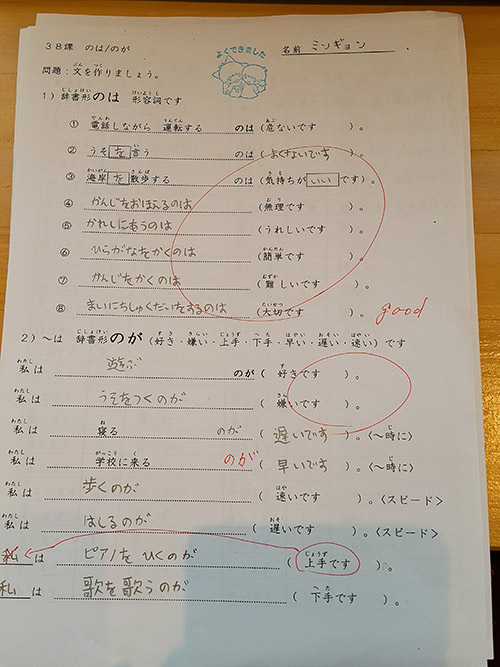 38課 のは/のが
よくできました
名前 ミンギョン .
問題：文を作りましょう。
1）辞書形のは 形容詞です
① 電話しながら 運転する のは（危ないです ）。
② うそ を 言う のは（よくないです ）。
③ 海岸 を 散歩する のは（気持ちが いい です）。
④ かんじをおぼえるのは （無理です ）。
⑤ かれしにもうのは （うれしいです ）。
⑥ ひらがなをかくのは （簡単です ）。
⑦ かんじをかくのは （難しいです ）。
⑧ まいにちしゅくだいをするのは （大切です ）。
good
2）～は 辞書形のが（好き・嫌い・上手・下手・早い・遅い・速い）です
私は 遊ぶ のが（ 好きです ）。
私は うそをつくのが （ 嫌いです ）。
私は 寝る のが（ 遅いです ）。（～時に）
私は 学校に来る のが（ 早いです ）。（～時に）
私は 歩くのが （ 速いです ）。〈スピード〉
私は はしるのが （ 遅いです ）。〈スピード〉
私 は ピアノを ひくのが （ 上手です ）。
私 は 歌を歌うのが （ 下手です ）。